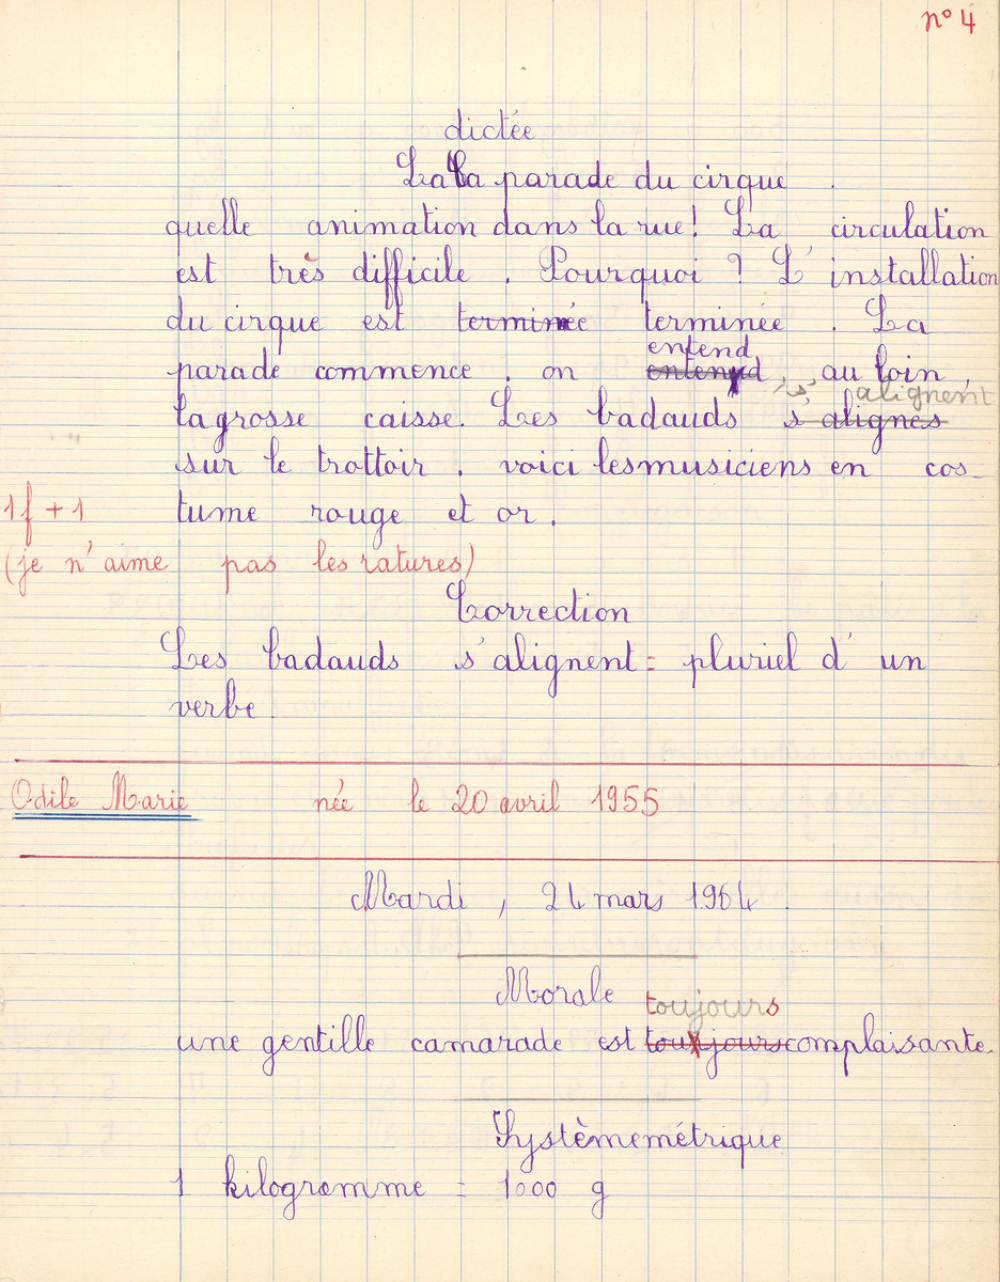 n° 4
dictée
La La parade du cirque .
quelle animation dans la rue! La circulation
est très difficile . Pourquoi ? L'installation
du cirque est terminée terminée . La
entend
parade commence . on entend , au loin ,
s'alignent
la grosse caisse. Les badauds s'alignes
sur le trottoir . voici lesmusiciens en cos-
1f + 1 tume rouge et or .
(je n'aime pas les ratures)
Correction
Les badauds s'alignent = pluriel d'un
verbe .
Odile Marie née le 20 avril 1955
Mardi , 24 mars 1964 .
Morale
toujours
une gentille camarade est toujours complaisante.
Systèmemétrique
1 kilogramme = 1000 g